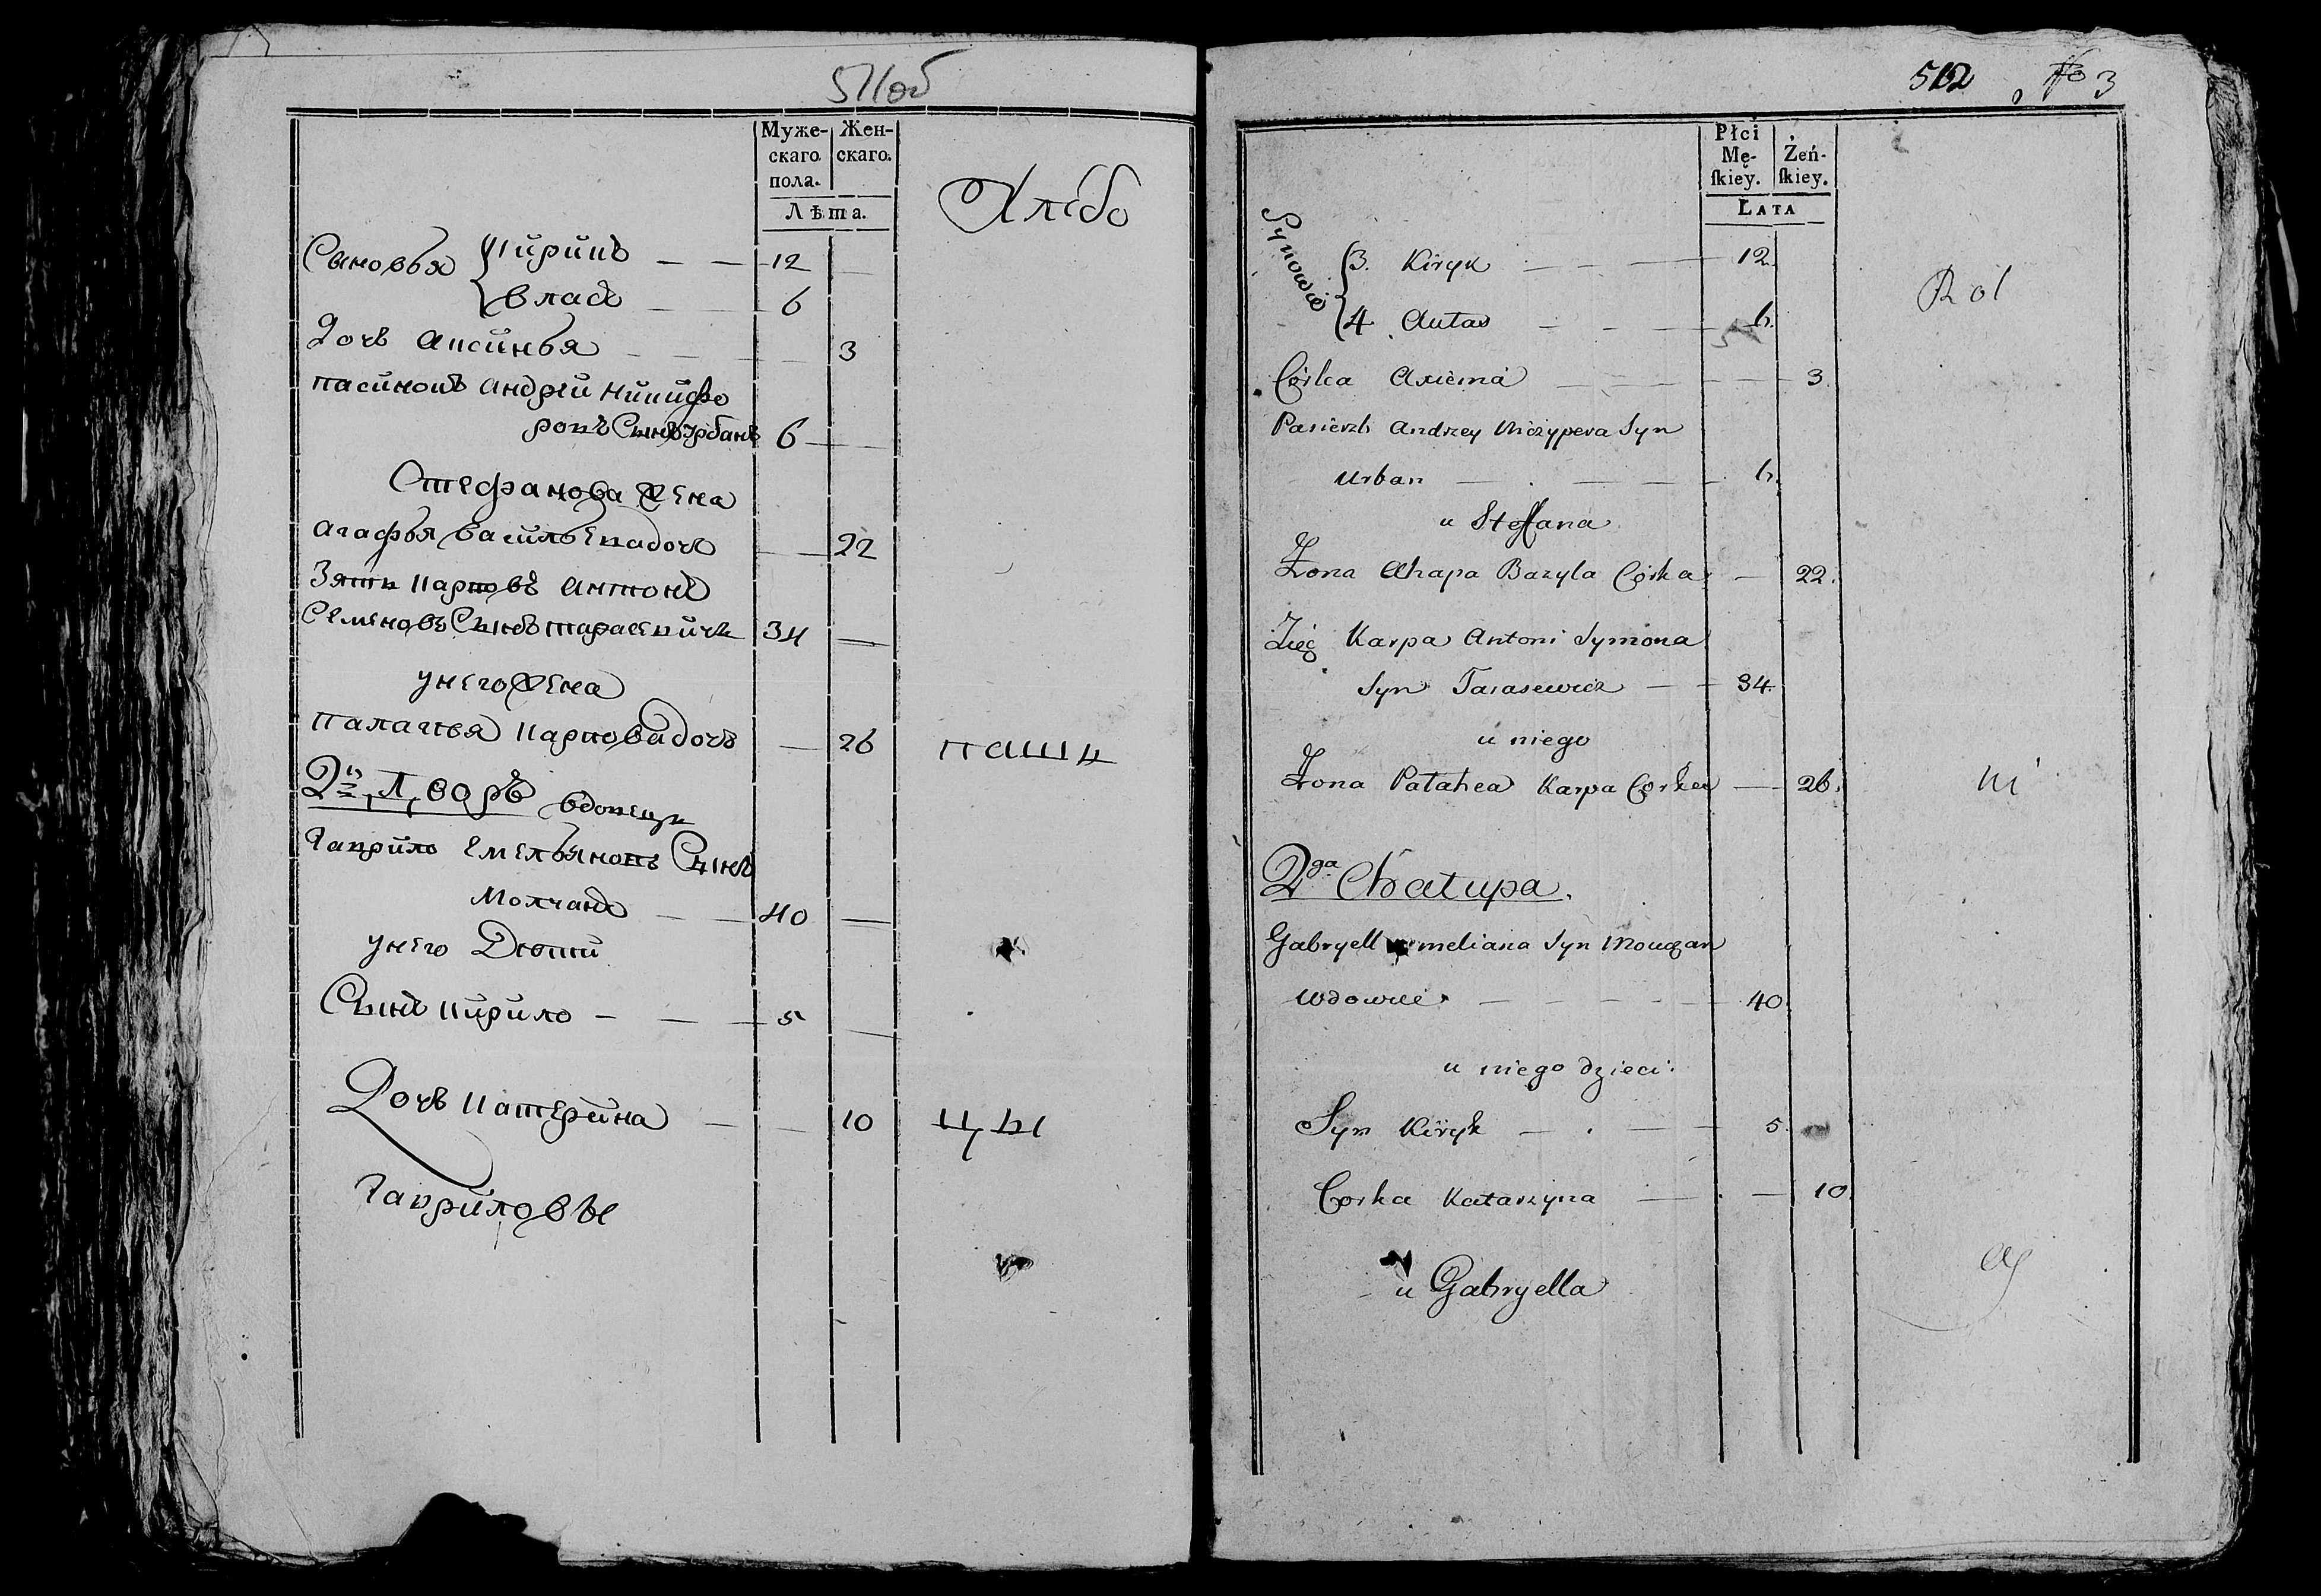 511об
Муже-
скаго
пола.
Жен-
скаго.
Лѣта.
Хлебо
Сыновья
Кирикъ — — 12 —
Власъ — — 6
Дочь Аксинья — — — 3
пасинокъ Андрей Никифо
ровъ Сынъ Урбанъ 6 —
Стефанова Жена
Агафья Васильева дочь — 22
Зять Карповъ Антонъ
Семеновъ Сынъ Тарасевичъ 34 —
у него Жена
Палагея Карпова дочь — 26
паш
2й Дворъ вдовецъ
Гаврило Емельяновъ Сынъ
Молчанъ — — 40 —
у него Дети
Сынъ Кирило — — 5 —
Дочь Катерина — — 10
цы
Гавриловы
512 3
Płci
Mę-
ſkiey.
Żeń-
ſkiey.
LATA
Synowie
3. Kiryk — — — 12.
Rol
4 Autas — — — 6.
Córka Axiema — — — 3.
Pasierzb Andrzey Niczypera Syn
Urban — — — 6.
u Steffana
Zona Ahapa Bazyla Córka — 22.
Zięć Karpa Antoni Symona
Syn Tarasewicz — — 34.
u niego
Zona Patahea Karpa Corka — 26.
ni
2ga Chatupa.
Gabryell meliana Syn Mouczan
Wdowiec — — — — 40.
u niego dzieci
Syn Kiryk — — — 5.
Corka Katarzyna — — 10.
u Gabryella